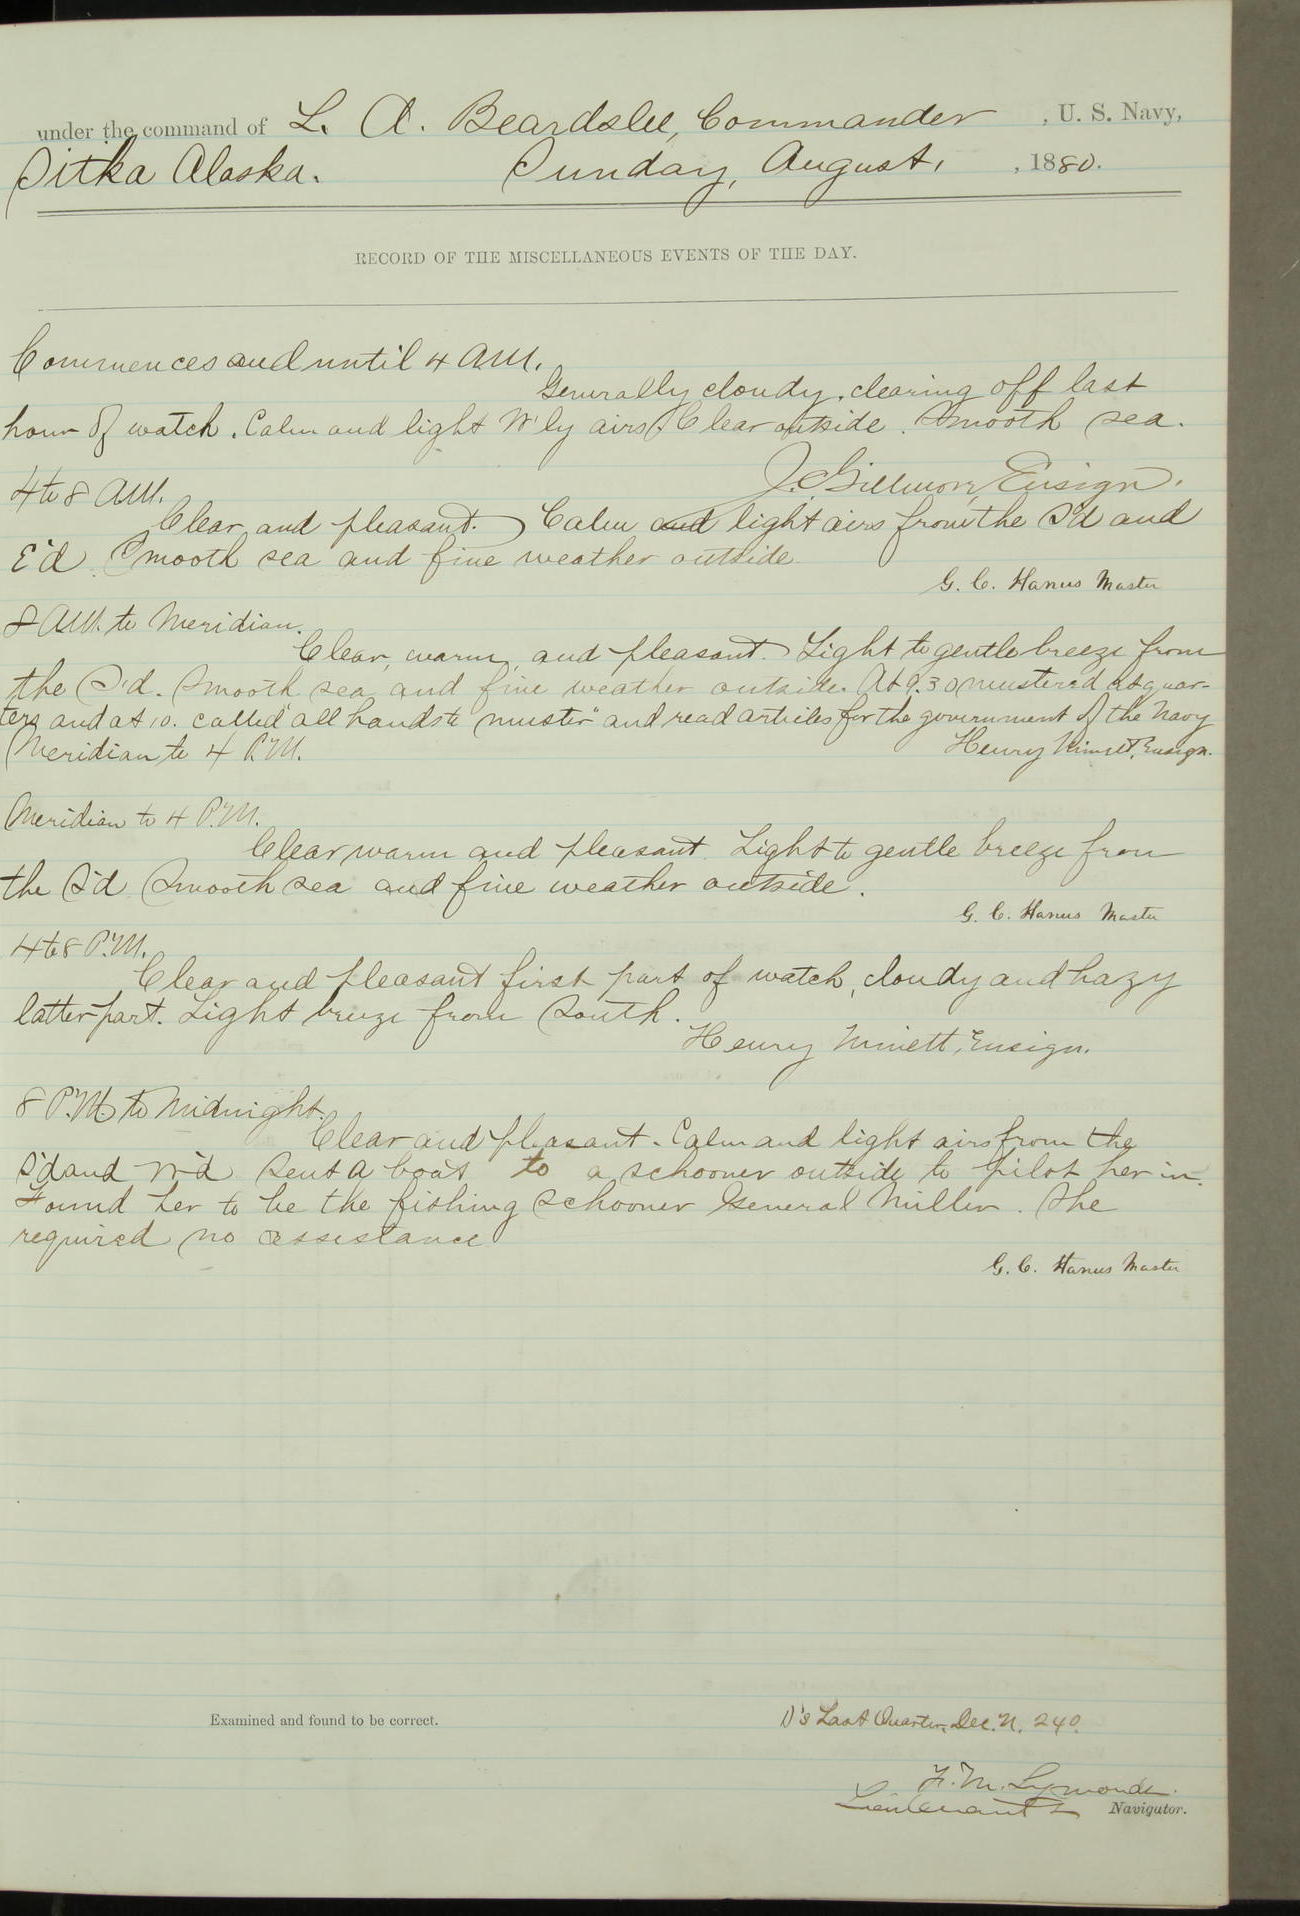 under the command of L. A. Beardslee, Commander , U. S. Navy,
Sitka Alaska. Sunday, August 1 , 1880.
RECORD OF THE MISCELLANEOUS EVENTS OF THE DAY.
Commences and until 4 A.M.
Generally cloudy, clearing off last
hour of watch. Calm and light W'ly airs. Clear outside. Smooth sea.
J. Gillmore, Ensign.
4 to 8 A.M.
Clear, and pleasant. Calm and light airs from the S'd and
E'd. Smooth sea and fine weather outside.
G. C. Hanus Master
8 A.M. to Meridian.
Clear, warm, and pleasant. Light to gentle breeze from
the S'd. Smooth sea and fine weather outside. At 9.30 mustered at quar-
ters and at 10. called "all hands to muster" and read articles for the government of the Navy
Henry Minett, Ensign.
Meridian to 4 P.M.
Meridian to 4 P.M.
Clear warm and pleasant. Light to gentle breeze from
the S'd Smooth sea and fine weather outside.
G. C. Hanus Master
4 to 8 P.M.
Clear and pleasant first part of watch, cloudy and hazy
latter part. Light breeze from South.
Henry Minett, Ensign.
8 P.M. to Midnight.
Clear and pleasant. Calm and light airs from the
S'd and W'd Sent a boat to a schooner outside to pilot her in.
Found her to be the fishing Schooner General Miller. She
required no assistance
G. C. Hanus Master
Examined and found to be correct.
D's Last Quarter, Dec. N. 240.
F. M. Symonds.
Lieutenant & Navigator.